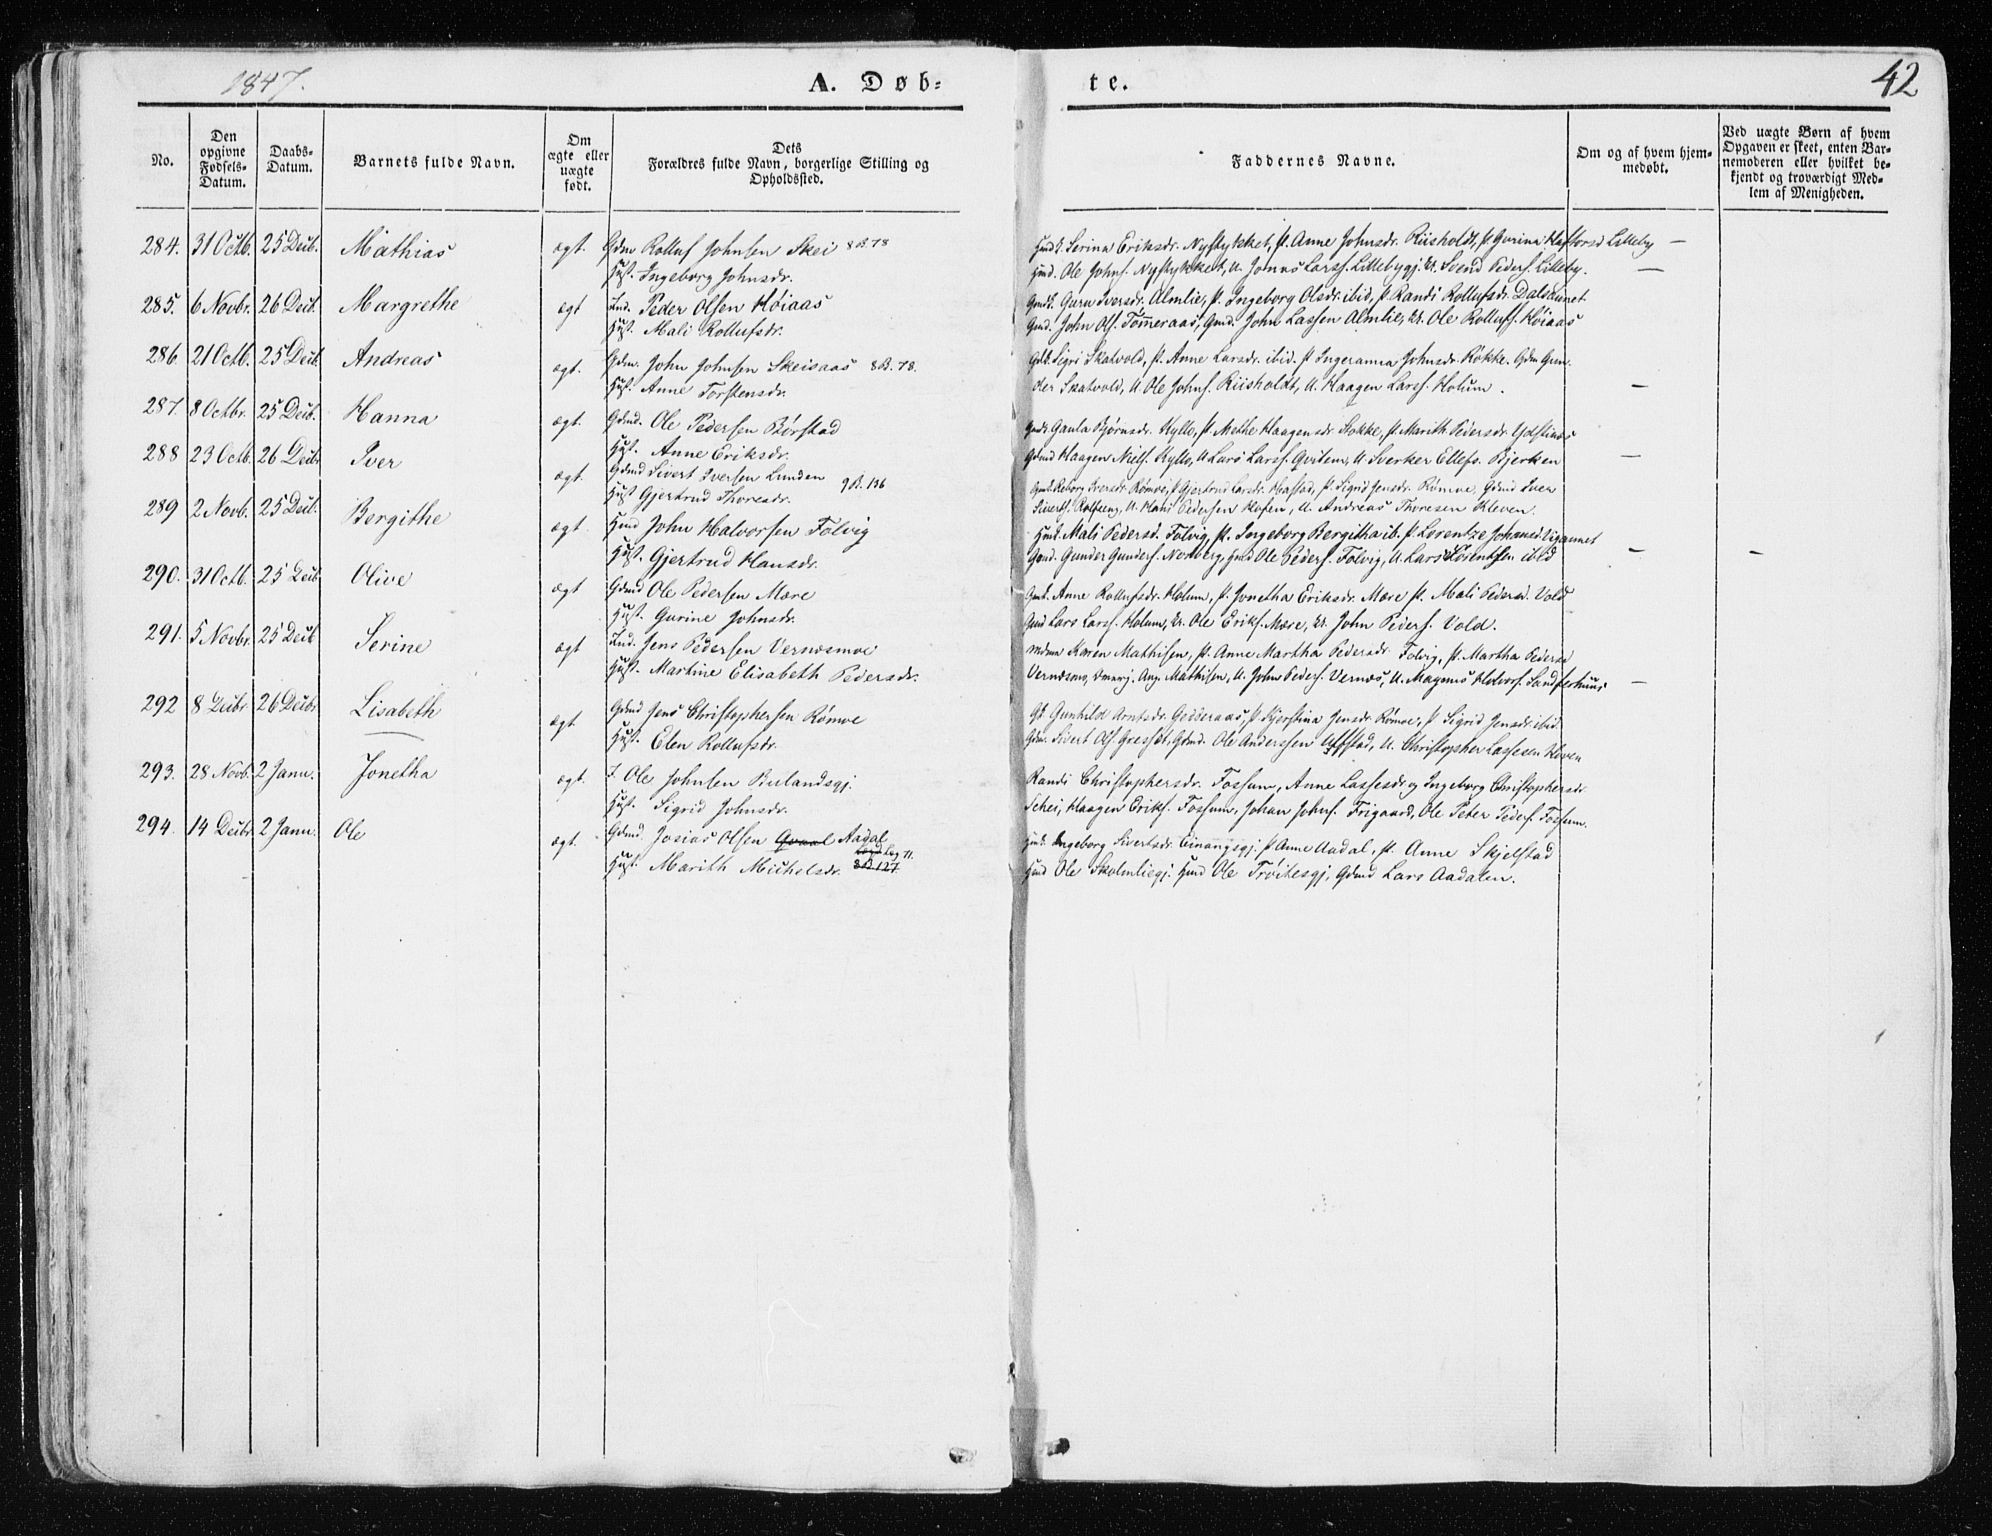 1847.
A. Døb-
te.
42
No.
Den opgivne Fødsels-Datum.
Daabs-Datum.
Barnets fulde Navn.
Om ægte eller uægte født.
Dets Forældres fulde Navn, borgerlige Stilling og Opholdssted.
Faddernes Navne.
Om og af hvem hjem-medøbt.
Ved uægte Børn af hvem Opgaven er skeet, enten Bar-nemoderen eller hvilket be-kjendt og troværdigt Med-lem af Menigheden.
284. 31 Octb. 25 Decb. Mathias ægt. Gdm Rolluf Johnsen Skei 8 B. 78
Hust. Ingeborg Johnsdr.
Serina Eriksdr. Nystykket, P. Anne Johnsdr. Riisholdt, P. Gurina Lilleby —
Hmd. Ole Johns. Nystykket, U. Jonas Larss. Lillebygj. U. Svend Peders. Lilleby. —
285. 6 Novbr. 26 Decb. Margrethe ægt Ind. Peder Olsen Høiaas
Hust. Mali Rollufsdr.
Guru Iversdr. Almlie, P. Ingeborg Olsdr. ibid, P. Randi Rollufsdr. Dalsaunet
Gmd. John Ols. Tømeraas, Gmd. John Lassen Almlie, U. Ole Rollufs. Høiaas
286. 21 Octb. 25 Decb. Andreas ægt. Gdm. John Johnsen Skeisaas 8 B. 78.
Hust. Anne Torstensdr.
Sigri Skatvold, P. Anne Larsdr. ibid. P Ingeranna Johnsdr. Røkke. Gdm Gun-
der Skatvold, U Ole Johns. Riisholdt, U. Haagen Larss. Holum. —
287. 8 Octbr. 25 Decb. Hanna ægt. Gdmd. Ole Pedersen Børstad
Hust. Anne Eriksdr.
Ganla Bjørnsdr. Hylle, P. Methe Haagensdr Stokke, P. Marith Pedersdr. Ydstines
Gdmd Haagen Niels. Hylle, U Lars Larss. Qvitem, U. Sverker Ellefs. Bjerken —
288 23 Octb. 26 Decbr Iver ægt. Gdmd Sivert Iversen Lunden 9 B. 136
Hust Gjertrud Thoresdr.
Iversdr. Rømoe, P Gjertrud Larsdr. Hastad, P. Sigrid Jensdr. Rømoe, Gdmd Iver
Siverts. Rolfseng, U. Hans Pedersen Hofen, U. Andreas Thoresen Kleven.
289 2 Novb. 25 Decb. Bergithe ægt. Hmd John Halvorsen Folvig
Hust. Gjertrud Hansdr.
Mali Pedersd. Folvig, P. Ingeborg Bergitha ib. P. Lorentze Johansd. Vigaunet
Gmd. Gunder Gunders. Norberg, Hmd Ole Peders. Folvig, U. Lars Lorentzen ibid — —
290. 31 Octb. 25 Decb Olive ægt Gdmd Ole Pedersen Mære
Hust. Gurine Johnsdr.
Anne Rollufsdr. Holum, P. Jonetha Eriksdr. Mære P. Mali Pedersd. Vold
Gmd Lars Larss. Holum, U. Ole Eriks. Mære, U. John Peders. Vold.
291. 5 Novbr. 25 Decb Serine ægt Ind. Jens Pedersen Vernæsmoe
Hust. Martine Elisabeth Pedersdr.
Mdme Karen Mathisen, P. Anne Martha Pedersdr. Folvig, P. Martha Pedersd
Vernæsmo, Aug. Mathisen, U. John Peders. Vernæs, U. Magnus Halvors. Sandferhuus. —
292 8 Decbr 26 Decbr Lisabeth ægt Gdmd Jens Christophersen Rømoe
Hust. Elen Rollufsdr.
Gunhild Arntsdr. Gedderaas, P. Kjerstina Jensdr. Rømoe, P Sigrid Jensdr. ibid.
Gdm. Sivert Ols Gresset, Gdmd. Ole Anderssen Uffstad, U. Christopher Lassesen Hoven
293. 28 Novb. 2 Janu. Jonetha ægt. I. Ole Johnsen Biulandsgj.
Hust. Sigrid Johnsdr.
Randi Christophersdr. Fossum, Anne Lassesdr og Ingeborg Christophersdr.
Schei, Haagen Eriks. Fossum, Johan Johns. Frigaard, Ole Peter Peders. Fossum.
294. 14 Decbr 2 Janu. Ole ægt. Gdmd. Josias Olsen Qvaal Aadal
Hust. Marith Michelsdr. 8 B 127
Hmd. Ingeborg Sivertsdr. Einangsgj. P Anne Aadal, P. Anne Skjelstad
Hmd Ole Skolmliegj. Hmd Ole Trøitesgj, Gdmd Lars Aadalen.